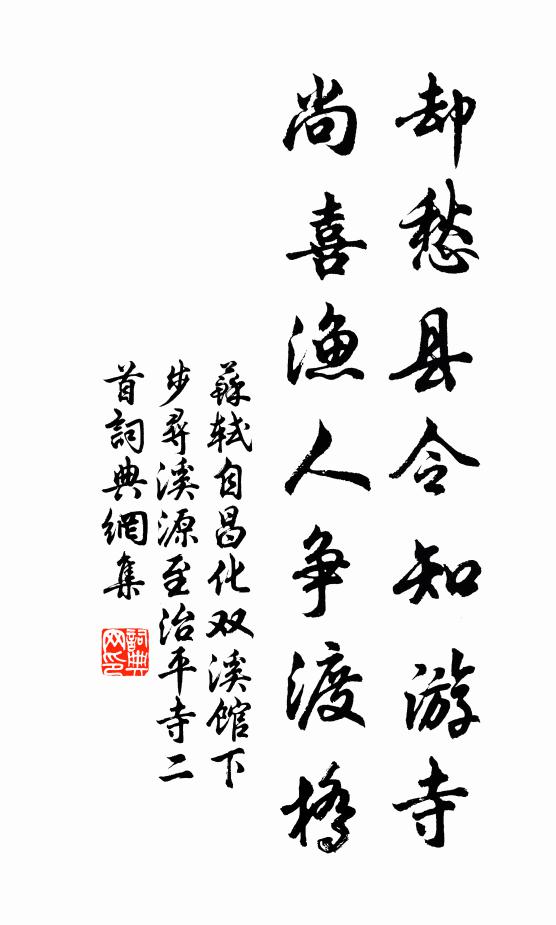 却愁县令知游寺
尚喜渔人争渡桥
蘇軾自昌化双溪馆下
步尋溪源至治平寺二
首詞典網集
詞典网印